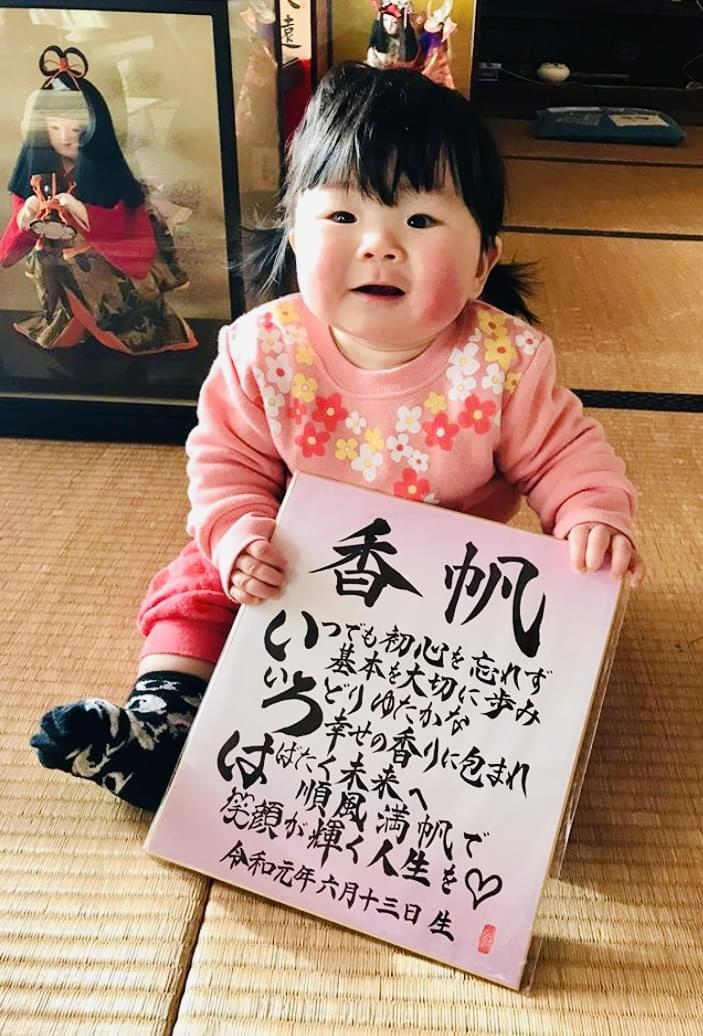 遠
香帆
いつでも初心を忘れず
基本を大切に歩み
いろどりゆたかな
幸せの香りに包まれ
はばたく未来へ
順風満帆で
笑顔が輝く人生を♡
令和元年六月十三日 生